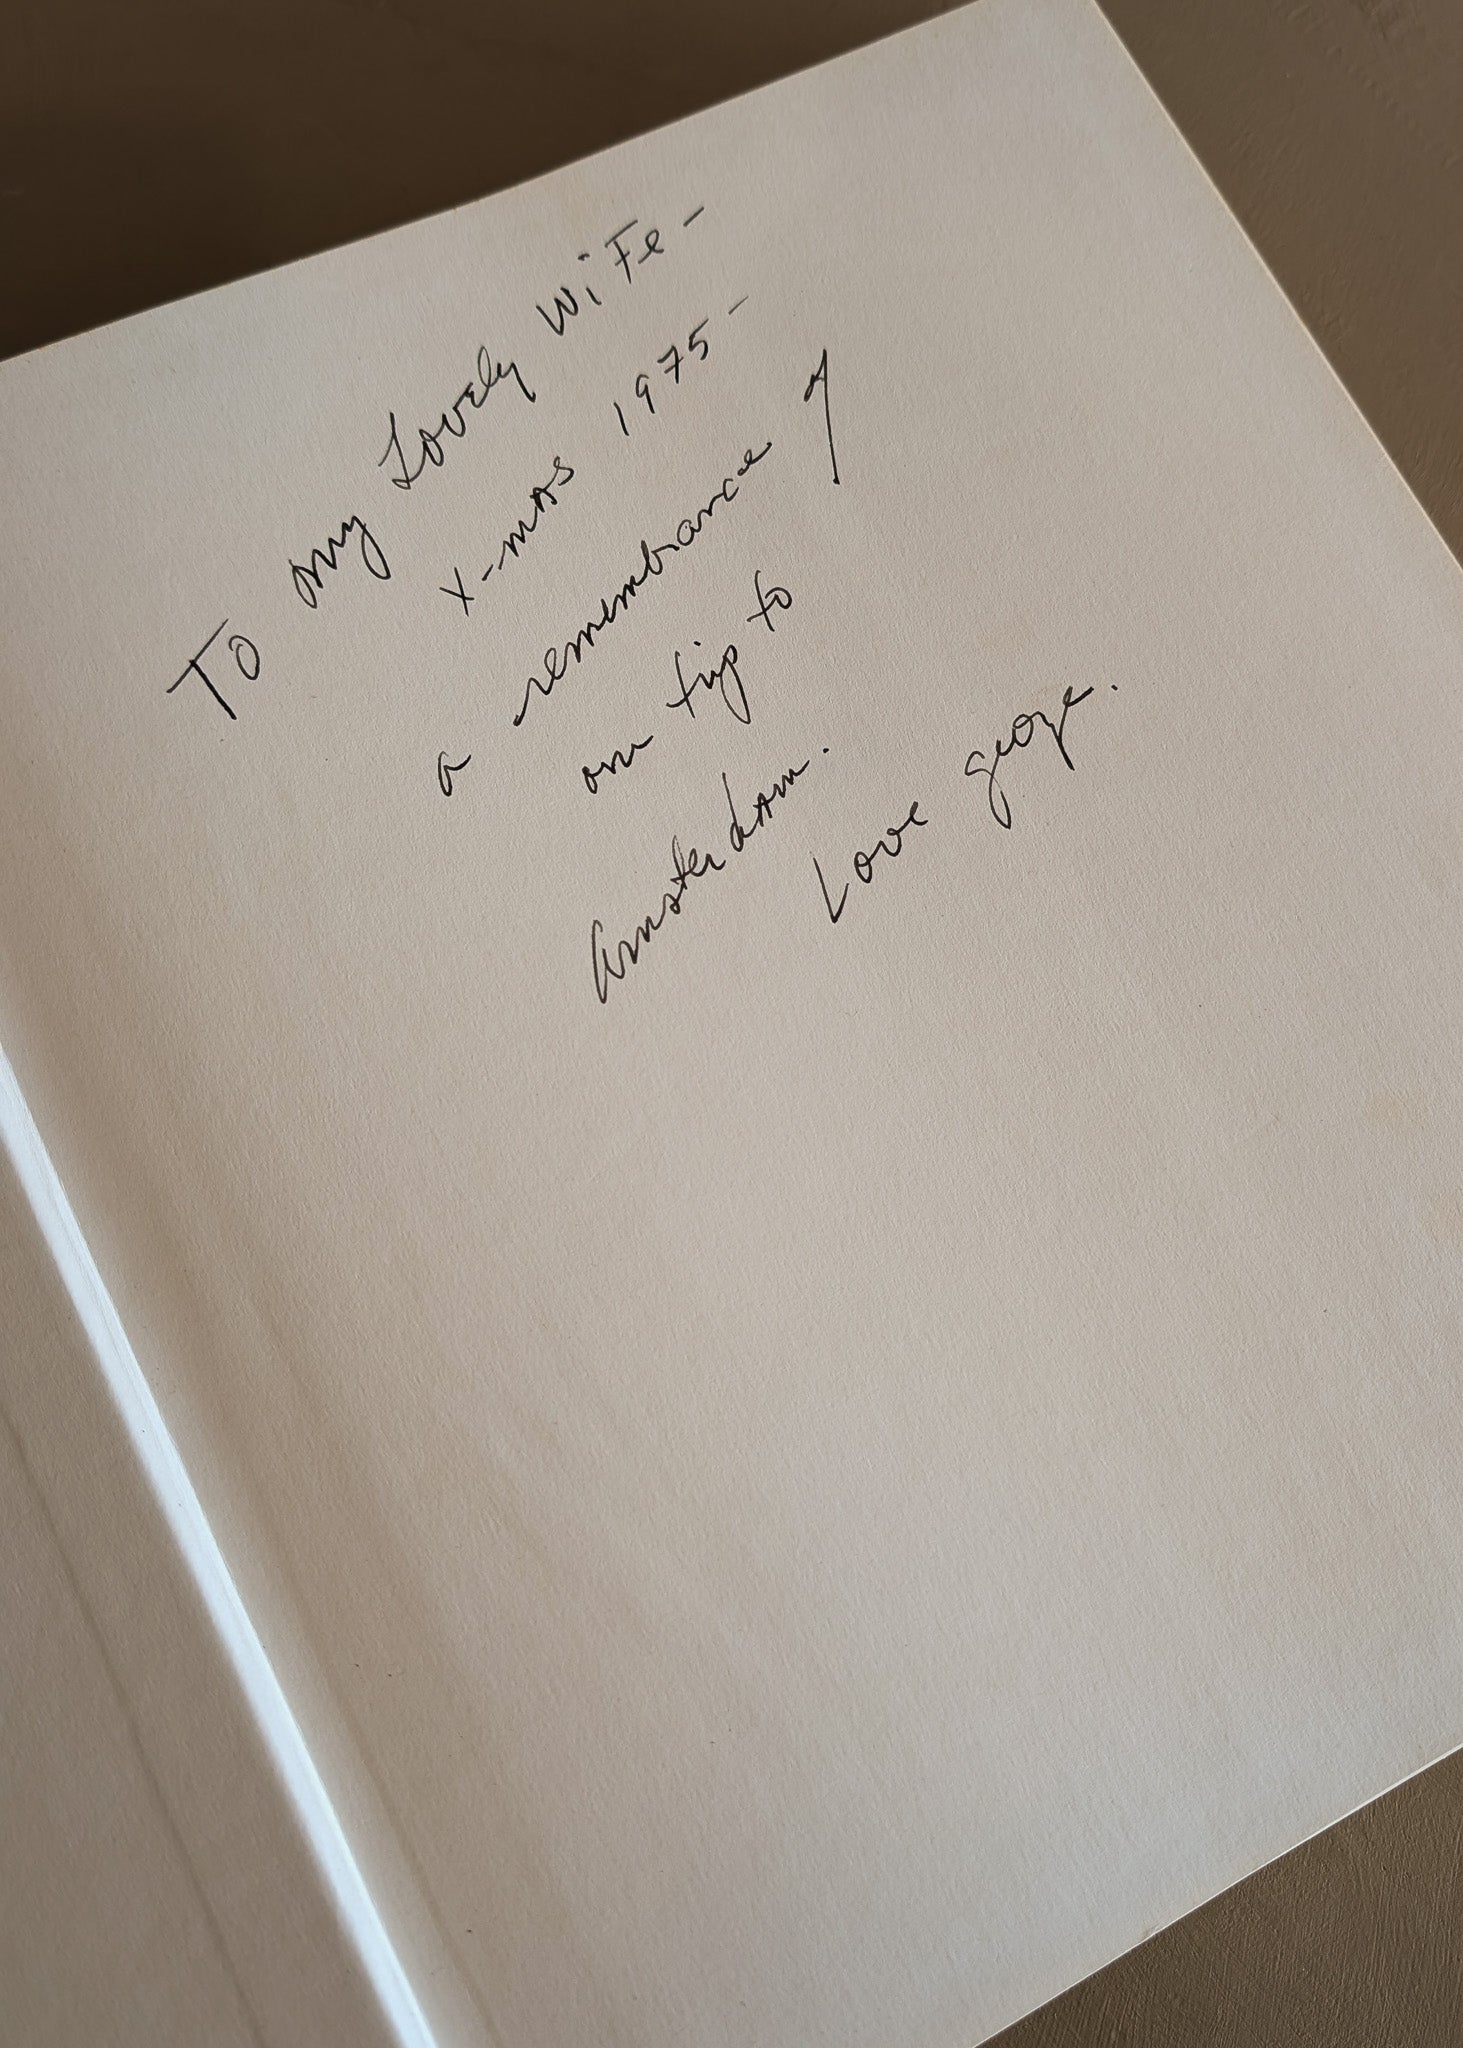 To my Lovely WiFe -
X-mAS 1975 -
a remembrance of
our trip to
AmsterdAm.
Love george.